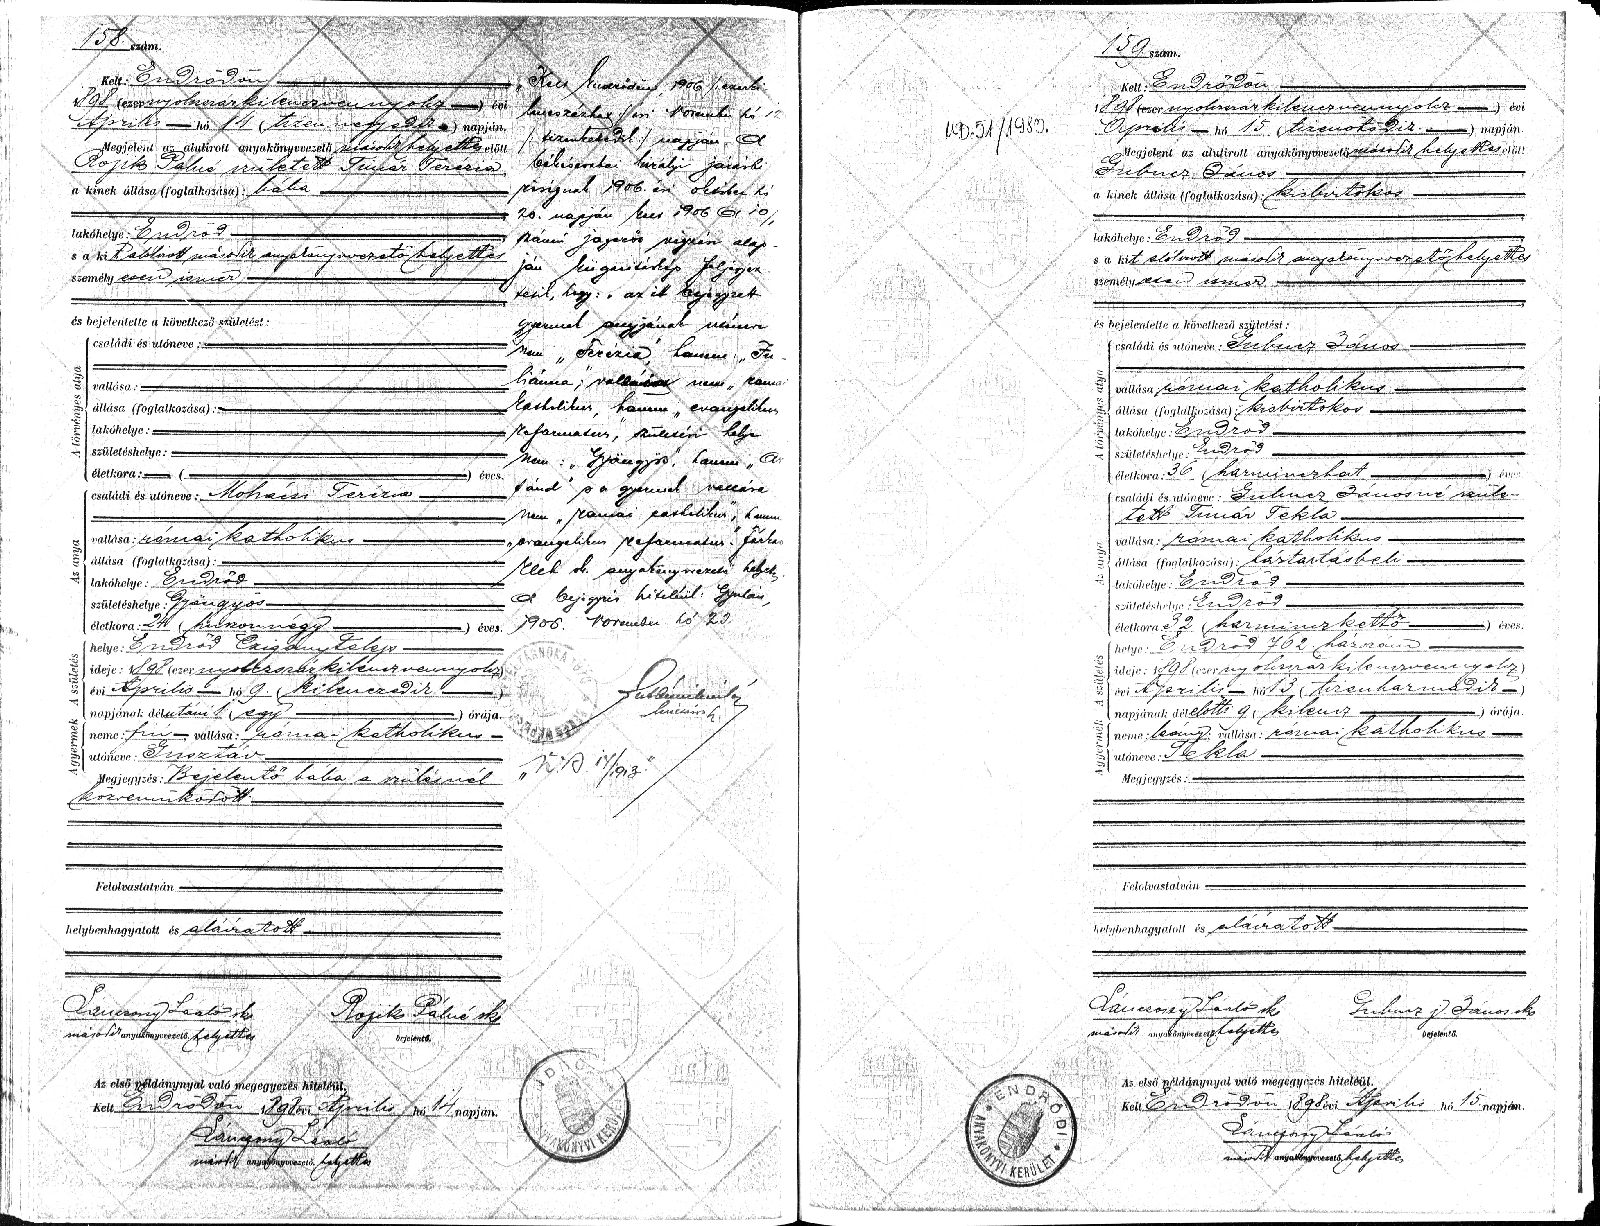 158. szám.
Kelt: Endrődön
1898 (ezer nyolczszázkilenczvennyolcz) évi
Április hó 14 (tizennegyedik) napján.
Megjelent az alulirott anyakönyvvezető másodikhelyettes előtt
Rojik Pálné született Timár Terézia
a kinek állása (foglalkozása): bába
lakóhelye: Endrőd
s a kit alólirott második anyakönyvvezető helyettes
személyesen ismer
és bejelentette a következő születést:
A törvényes atya
családi és utóneve:
vallása:
állása (foglalkozása):
lakóhelye:
születéshelye:
életkora: ( ) éves.
Az anya
családi és utóneve: Mohácsi Terézia
vallása: római katholikus
állása (foglalkozása):
lakóhelye: Endrőd
születéshelye: Gyöngyös
életkora: 24 (huszonnégy) éves.
A születés
helye: Endrőd Czigánytelep
ideje: 1898 (ezer nyolczszázkilenczvennyolcz)
évi Április hó 9. (kilenczedik)
napjának délutáni 1 (egy) órája.
A gyermek
neme: fiú, vallása: római katholikus
utóneve: Gusztáv
Megjegyzés: Bejelentő bába a szülésnél
közreműködött.
Felolvastatván
helybenhagyatott és aláiratott
Lánczony László sk
második anyakönyvvezető, helyettes
Rojik Pálné sk
bejelentő.
Az első példánynyal való megegyezés hiteléül.
Kelt Endrődön 1898 évi Április hó 14 napján.
Lánczony László
második anyakönyvvezető, helyettes
"Kelt Endrődön 1906 /ezerki-
lenczszázhat/ évi November hó 12
/tizenkettedik/ napján. A
békéscsabai királyi járásbi-
róságnak 1906 évi október hó
20. napján kelt 1906
számú jogerős végzése alap-
ján kiigazitáskép feljegyez-
tetik, hogy: az itt bejegyzett
gyermek anyjának utóneve
nem "Terézia", hanem "Ju-
liánna"; vallása nem "római
katholikus, hanem "evangelikus
reformatus", születési helye
nem: "Gyöngyös", hanem
s a gyermek vallása
nem "római katholikus", hanem
"evangelikus reformatus".
anyakönyvvezető helyettes
A bejegyzés hiteléül: Gyulán,
1906. November hó 23.
ENDRŐDI
ANYAKÖNYVI KERÜLET
159 szám.
UD.51/1989.
Kelt: Endrődön
1898 (ezer nyolczszázkilenczvennyolcz) évi
Április hó 15. (tizenötödik) napján.
Megjelent az alulirott anyakönyvvezető második helyettes előtt
Gubucz János
a kinek állása (foglalkozása): kisbirtokos
lakóhelye: Endrőd
s a kit alólirott második anyakönyvvezető helyettes
személyesen ismer
és bejelentette a következő születést:
A törvényes atya
családi és utóneve: Gubucz János
vallása: római katholikus
állása (foglalkozása): kisbirtokos
lakóhelye: Endrőd
születéshelye: Endrőd
életkora: 36 (harminczhat) éves.
Az anya
családi és utóneve: Gubucz Jánosné szüle-
tett Timár Tekla
vallása: római katholikus
állása (foglalkozása): háztartásbeli
lakóhelye: Endrőd
születéshelye: Endrőd
életkora: 32 (harminczkettő) éves.
A születés
helye: Endrőd 762 házszám
ideje: 1898 (ezer nyolczszázkilenczvennyolcz)
évi Április hó 13. (tizenharmadik)
napjának délelőtti 9 (kilencz) órája.
A gyermek
neme: leány, vallása: római katholikus
utóneve: Tekla
Megjegyzés:
Felolvastatván
helybenhagyatott és aláiratott
Lánczony László sk
második anyakönyvvezető, helyettes
Gubucz János sk
bejelentő.
Az első példánynyal való megegyezés hiteléül.
Kelt Endrődön 1898 évi Április hó 15 napján.
Lánczony László
második anyakönyvvezető, helyettes
ENDRŐDI
ANYAKÖNYVI KERÜLET